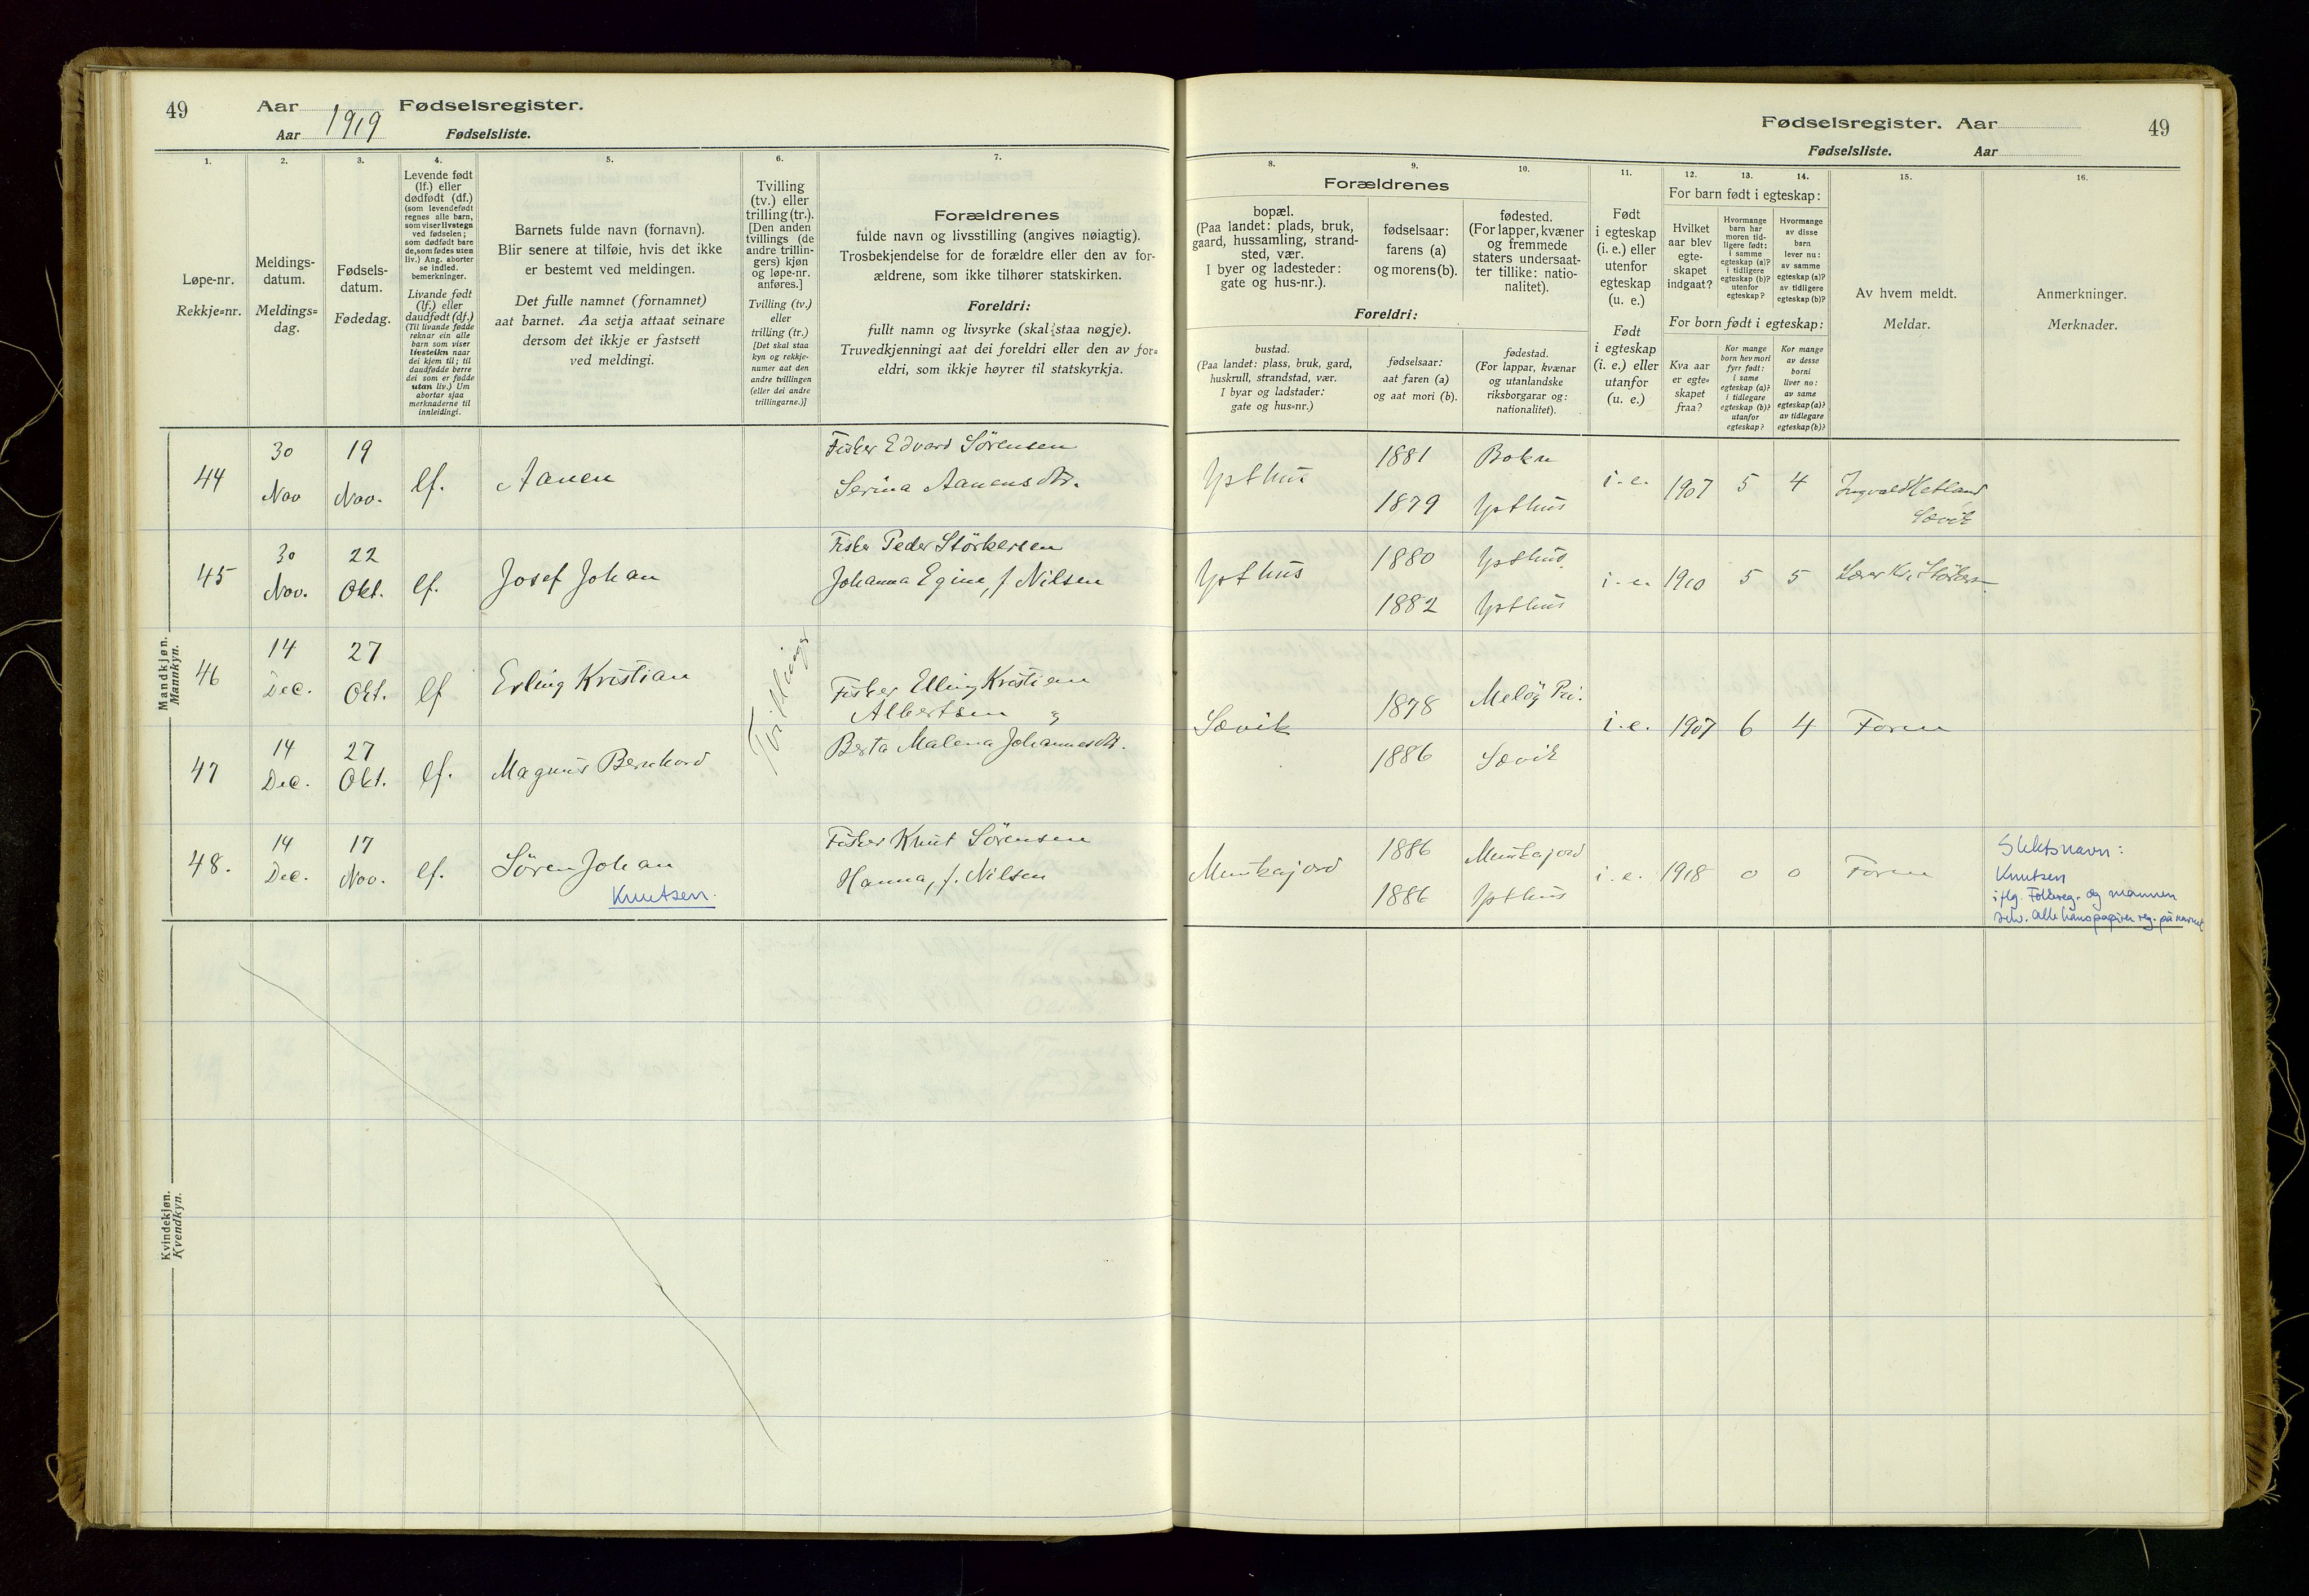 49 Aar 1919 Fødselsregister.
Aar Fødselsliste.
1. 2. 3. 4. 5. 6. 7.
Løpe-nr.
Rekkje=nr.
Meldings-
datum.
Meldings=
dag.
Fødsels-
datum.
Fødedag.
Levende født
(lf.) eller
dødfødt (df.)
(som levendefødt
regnes alle barn,
som viser livstegn
ved fødselen;
som dødfødt bare
de, som fødes uten
liv.) Ang. aborter
se indled.
bemerkninger.
Livande født
(lf.) eller
daudfødt (df.)
(Til livande fødde
reknar ein alle
barn som viser
livsteikn naar
dei kjem til; til
daudfødde berre
dei som er fødde
utan liv.) Um
abortar sjaa
merknaderne til
innleidingi.
Barnets fulde navn (fornavn).
Blir senere at tilføie, hvis det ikke
er bestemt ved meldingen.
Det fulle namnet (fornamnet)
aat barnet. Aa setja attaat seinare
dersom det ikkje er fastsett
ved meldingi.
Tvilling
(tv.) eller
trilling (tr.).
[Den anden
tvillings (de
andre trillin-
gers) kjøn
og løpe-nr.
anføres.]
Tvilling (tv.)
eller
trilling (tr.)
[Det skal staa
kyn og rekkje-
numer aat den
andre tvillingen
(eller dei andre
trillingarne.)]
Forældrenes
fulde navn og livsstilling (angives nøiagtig).
Trosbekjendelse for de forældre eller den av for-
ældrene, som ikke tilhører statskirken.
Foreldri:
fullt namn og livsyrke (skal staa nøgje).
Truvedkjenningi aat dei foreldri eller den av for=
eldri, som ikkje høyrer til statskyrkja.
Mandkjøn.
Mannkyn.
44 30 Nov 19 Nov. lf. Aanen
Fisker Edvard Sörensen
Serina Aanensdtr.
45 30 Nov. 22 Okt. lf. Josef Johan
Fisker Peder Störkersen
Johanna Egine, f. Nilsen
46 14 Dec. 27 Okt. lf Erling Kristian
Tvillinger
Fisker Elling Kristian
Albertsen
Berta Malena Johannesdtr.
47 14 Dec. 27 Okt. lf. Magnus Bernhard
48. 14 Dec. 17 Nov. lf. Sören Johan
Knutsen.
Fisker Knut Sörensen
Hanna, f. Nilsen
Kvindekjøn.
Kvendkyn.
Fødselsregister. Aar 49
Fødselsliste. Aar
8. 9. 10. 11. 12. 13. 14. 15. 16.
Forældrenes
bopæl.
(Paa landet: plads, bruk,
gaard, hussamling, strand-
sted, vær.
I byer og ladesteder:
gate og hus-nr.).
fødselsaar:
farens (a)
og morens (b).
fødested.
(For lapper, kvæner
og fremmede
staters undersaat-
ter tillike: natio-
nalitet).
Foreldri:
bustad.
(Paa landet: plass, bruk, gard,
huskrull, strandstad, vær.
I byar og ladstader:
gate og hus=nr.)
fødselsaar:
aat faren (a)
og aat mori (b).
fødestad.
(For lappar, kvænar
og utanlandske
riksborgarar og:
nationalitet).
Født
i egteskap
(i. e.) eller
utenfor
egteskap
(u. e.)
Født
i egteskap
(i. e.) eller
utanfor
(u. e.)
For barn født i egteskap:
Hvilket
aar blev
egte-
skapet
indgaat?
Hvormange
barn har
moren tid-
ligere født:
i samme
egteskap (a)?
i tidligere
egteskap (b)?
utenfor
egteskap?
Hvormange
av disse
barn
lever nu:
av samme
egteskap (a)?
av tidligere
egteskap (b)?
For born født i egteskap:
Kva aar
er egte=
skapet
fraa?
Kor mange
born hev mori
fyrr født:
i same
egteskap (a)?
i tidlegare
egteskap (b)?
utanfor
egteskap?
Kor mange
av desse
borni
liver no:
av same
egteskap (a)?
av tidlegare
egteskap (b)?
Av hvem meldt.
Meldar.
Anmerkninger.
Merknader.
Ypsthus 1881 Bokn
1879 Ypsthus
i. e. 1907 5 4 Ingvald Hetland
Sævik
Ypsthus 1880 Ypsthus
1882 Ypsthus
i. e. 1910 5 5 Lærer Kr. Störkersen
Sævik 1878 Melöy
1886 Sævik
i. e. 1907 6 4 Faren
Munkajord 1886 Munkajord
1886 Ypsthus
i. e. 1918 0 0 Faren
Slektsnavn:
Knutsen
iflg. Folkereg. og mannen
selv. Alle hans papirer reg. på navnet